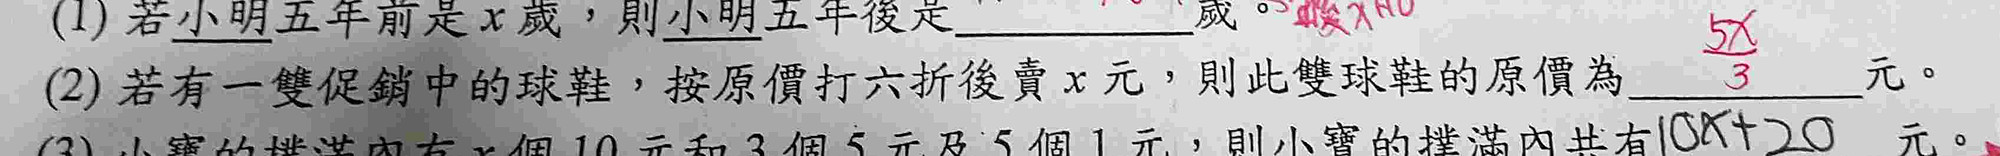 (1) 若小明五年前是 x 歲，則小明五年後是____________歲。x+10
(2) 若有一雙促銷中的球鞋，按原價打六折後賣 x 元，則此雙球鞋的原價為 5x/3 元。
(3) 小寶的撲滿內有 x 個 10 元和 3 個 5 元及 5 個 1 元，則小寶的撲滿內共有 10x+20 元。